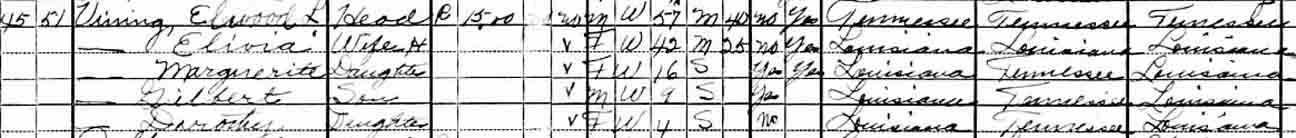 45 51 Vining, Elwood L Head R 15.00 no M W 57 M 40 no Yes Tennessee Tennessee Tennessee
— Elivia Wife H v F W 42 M 25 no Yes Louisiana Louisiana Louisiana
— Marguerite Daughter v F W 16 S Yes Yes Louisiana Tennessee Louisiana
— Gilbert Son v M W 9 S Yes Louisiana Tennessee Louisiana
— Dorothy Daughter v F W 4 S no Louisiana Tennessee Louisiana